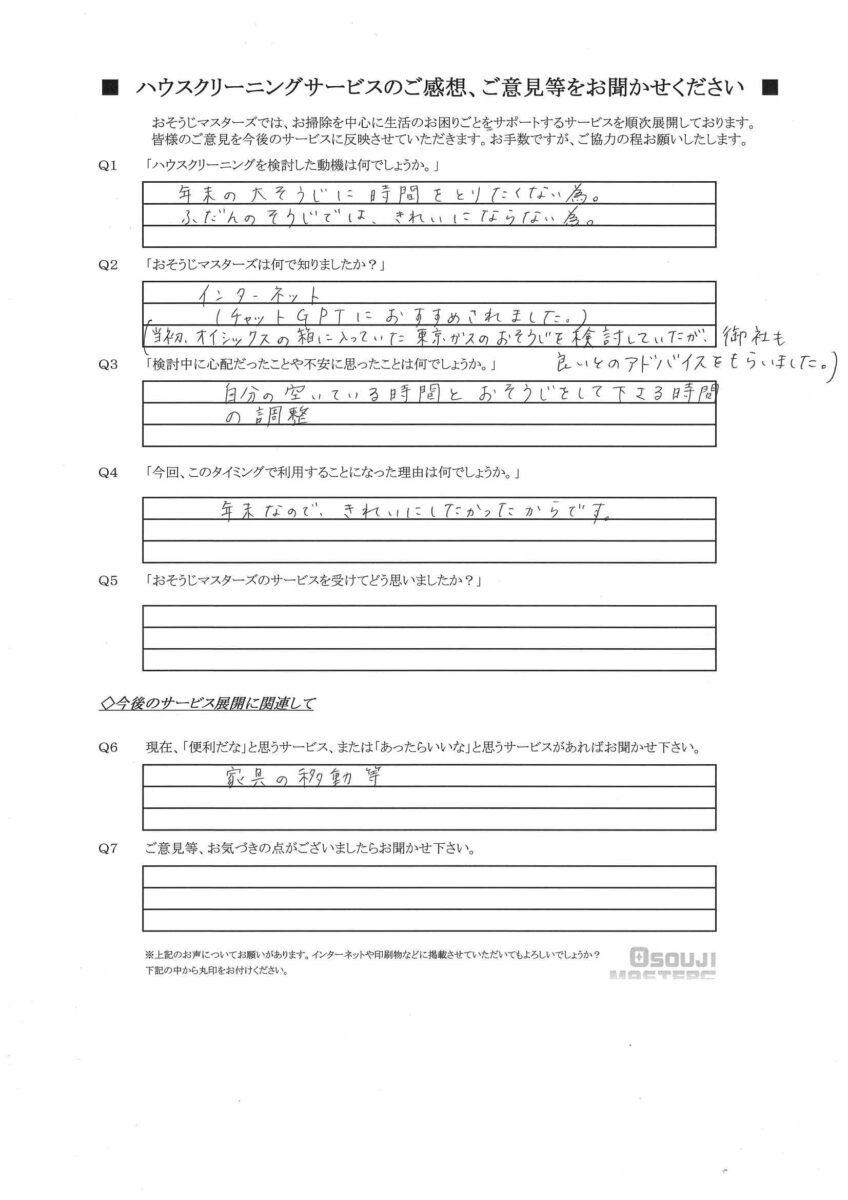 ■ ハウスクリーニングサービスのご感想、ご意見等をお聞かせください ■
おそうじマスターズでは、お掃除を中心に生活のお困りごとをサポートするサービスを順次展開しております。
皆様のご意見を今後のサービスに反映させていただきます。お手数ですが、ご協力の程お願いしたします。
Q1 「ハウスクリーニングを検討した動機は何でしょうか。」
年末の大そうじに時間をとりたくない為。
ふだんのそうじでは、きれいにならない為。
Q2 「おそうじマスターズは何で知りましたか？」
インターネット
(チャットGPTにおすすめされました。)
(当初、オイシックスの箱に入っていた東京ガスのおそうじを検討していたが、御社も
良いとのアドバイスをもらいました。)
Q3 「検討中に心配だったことや不安に思ったことは何でしょうか。」
自分の空いている時間とおそうじをして下さる時間
の調整
Q4 「今回、このタイミングで利用することになった理由は何でしょうか。」
年末なので、きれいにしたかったからです。
Q5 「おそうじマスターズのサービスを受けてどう思いましたか？」
◇今後のサービス展開に関連して
Q6 現在、「便利だな」と思うサービス、または「あったらいいな」と思うサービスがあればお聞かせ下さい。
家具の移動等
Q7 ご意見等、お気づきの点がございましたらお聞かせ下さい。
※上記のお声についてお願いがあります。インターネットや印刷物などに掲載させていただいてもよろしいでしょうか？
下記の中から丸印をお付けください。
OSOUJI
MASTERS